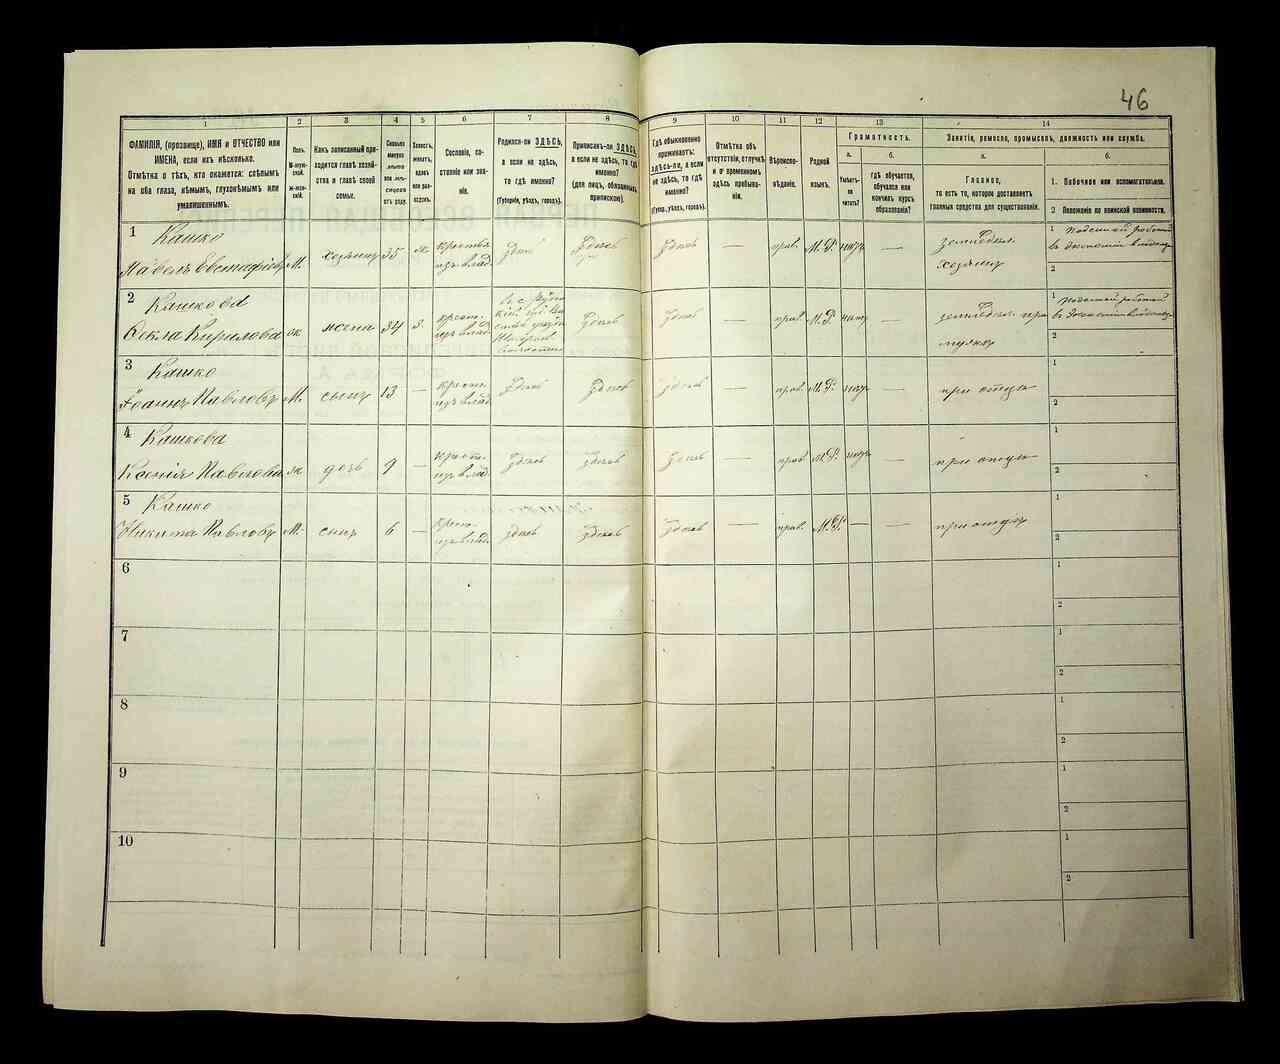 46
1
2
3
4
5
6
7
8
9
10
11
12
13
14
ФАМИЛІЯ, (прозвище), ИМЯ и ОТЧЕСТВО или
ИМЕНА, если ихъ нѣсколько.
Отмѣтка о тѣхъ, кто окажется: слѣпымъ
на оба глаза, нѣмымъ, глухонѣмымъ или
умалишеннымъ.
Полъ.
М-муж-
ской.
Ж-жен-
скій.
Какъ записанный при-
ходится главѣ хозяй-
ства и главѣ своей
семьи.
Сколько
минуло
лѣтъ
или мѣ-
сяцевъ
отъ роду.
Холостъ,
женатъ,
вдовъ
или раз-
веденъ.
Сословіе, со-
стояніе или зва-
ніе.
Родился-ли ЗДѢСЬ,
а если не здѣсь,
то гдѣ именно?
(Губернія, уѣздъ, городъ).
Приписанъ-ли ЗДѢСЬ,
а если не здѣсь, то гдѣ
именно?
(для лицъ, обязанныхъ
припискою).
Гдѣ обыкновенно
проживаетъ:
здѣсь-ли, а если
не здѣсь, то гдѣ
именно?
(Губер., уѣздъ, городъ).
Отмѣтка объ
отсутствіи, отлучкѣ
и о временномъ
здѣсь пребыва-
ніи.
Вѣроиспо-
вѣданіе.
Родной
языкъ.
Грамотность.
а.
Умѣетъ-
ли
читать?
б.
гдѣ обучается,
обучался или
кончилъ курсъ
образованія?
Занятіе, ремесло, промыселъ, должность или служба.
а.
Главное,
то есть то, которое доставляетъ
главныя средства для существованія.
б.
1. Побочное или вспомогательное.
2 Положеніе по воинской повинности.
1
Кашко
Павелъ Евстафіевъ М. хозяинъ 35 ж. крестья изъ влад. здѣсь здѣсь здѣсь — прав. М.Р. нѣтъ — земледѣл. хозяинъ
1 Поденной работой
въ экономіи
2
2
Кашкова
Ѳекла Кирилова ж жена 34 з. крест. изъ влад.
здѣсь здѣсь — прав. М.Р. нѣтъ — земледѣл. при мужѣ
1 Поденной работой
въ экономіи
2
3
Кашко
Іоаннъ Павловъ М. сынъ 13 — крест. изъ влад. здѣсь здѣсь здѣсь — прав. М.Р. нѣтъ — при отцѣ
1
2
4
Кашкова
Ксенія Павлова ж дочь 9 — крест. изъ влад. здѣсь здѣсь здѣсь — прав. М.Р. нѣтъ — при отцѣ
1
2
5
Кашко
Никита Павловъ М. сынъ 6 — крест. изъ влад. здѣсь здѣсь здѣсь — прав. М.Р. — — при отцѣ
1
2
6
1
2
7
1
2
8
1
2
9
1
2
10
1
2